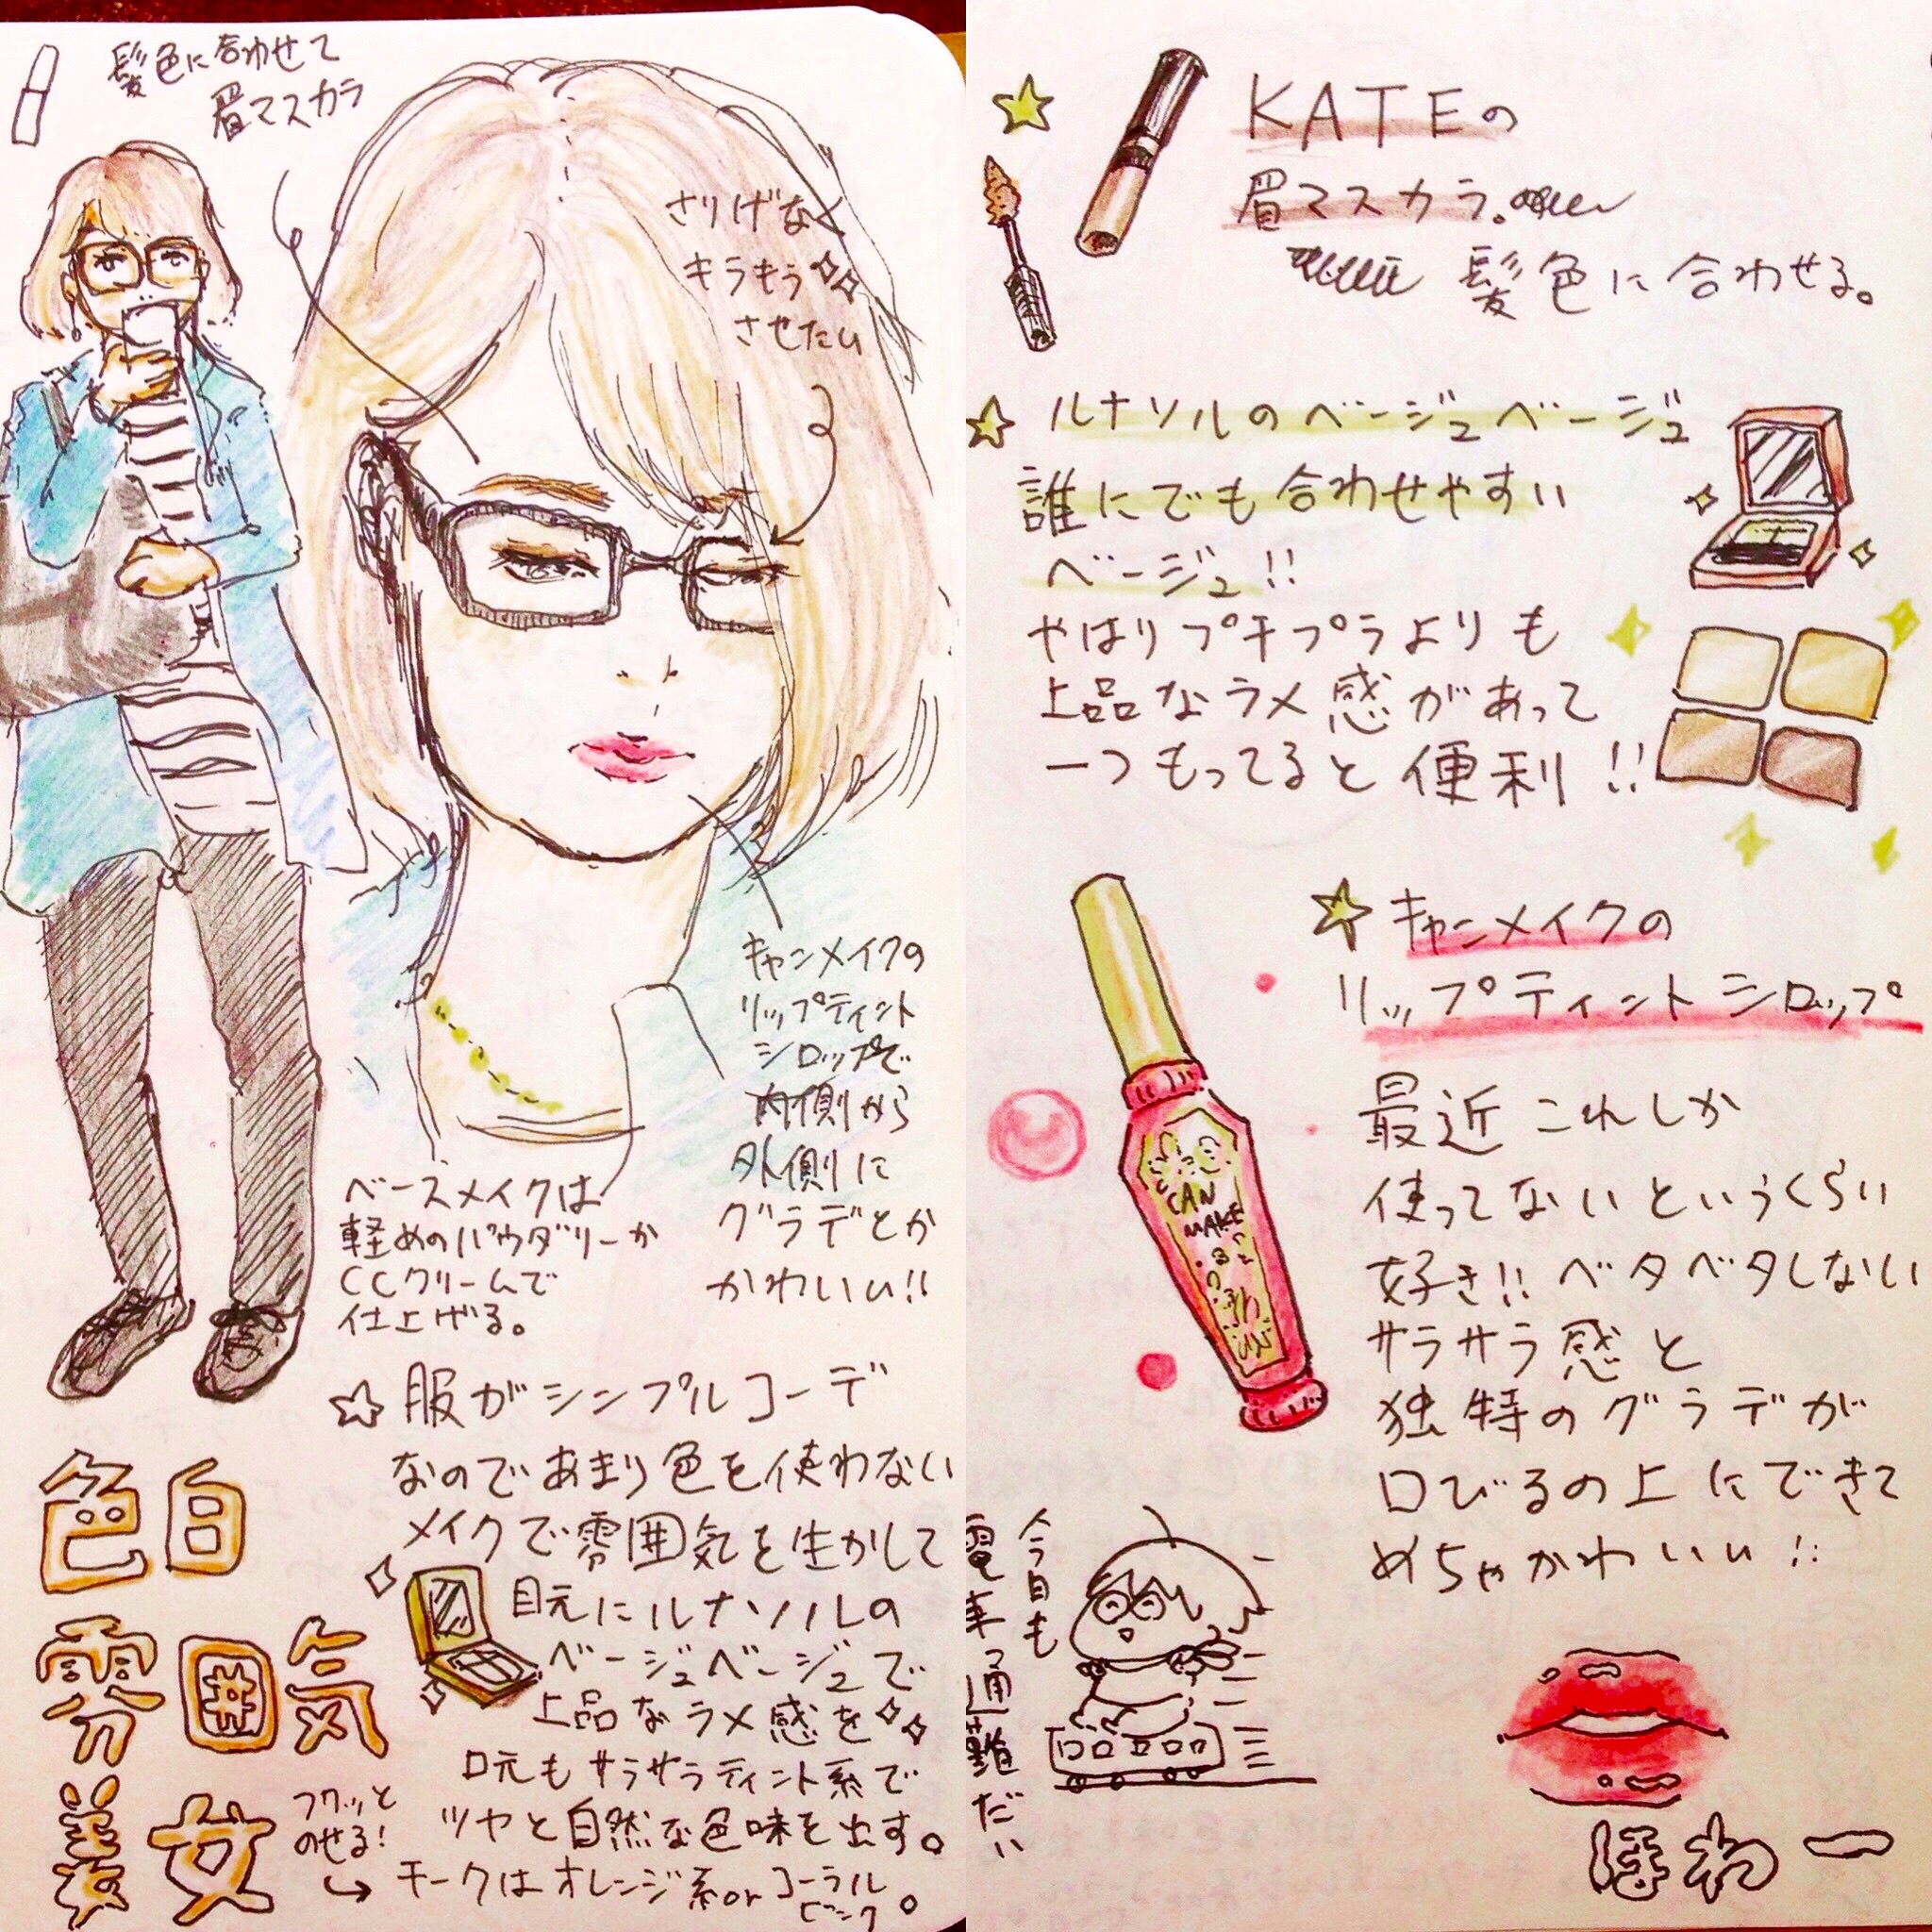 髪色に合わせて
眉マスカラ
さりげなく
キラキラ
させたい
キャンメイクの
リップティント
シロップで
内側から
外側に
グラデとか
かわいい!!
ベースメイクは
軽めのパウダリーか
CCクリームで
仕上げる。
☆服がシンプルコーデ
なのであまり色を使わない
メイクで雰囲気を生かして
目元にルナソルの
ベージュベージュで
上品なラメ感を
口元もサラサラティント系で
ツヤと自然な色味を出す。
チークはオレンジ系orコーラル
ピンク。
フワッと
のせる!
色白
雰囲気
美女
KATEの
眉マスカラ。
髪色に合わせる。
☆ルナソルのベージュベージュ
誰にでも合わせやすい
ベージュ!!
やはりプチプラよりも
上品なラメ感があって
一つもってると便利!!
☆キャンメイクの
リップティントシロップ
CAN
MAKE
最近これしか
使ってないというくらい
好き!!ベタベタしない
サラサラ感と
独特のグラデが
口びるの上にできて
めちゃかわいい!!
今日も
電車で通勤だい
ほわー